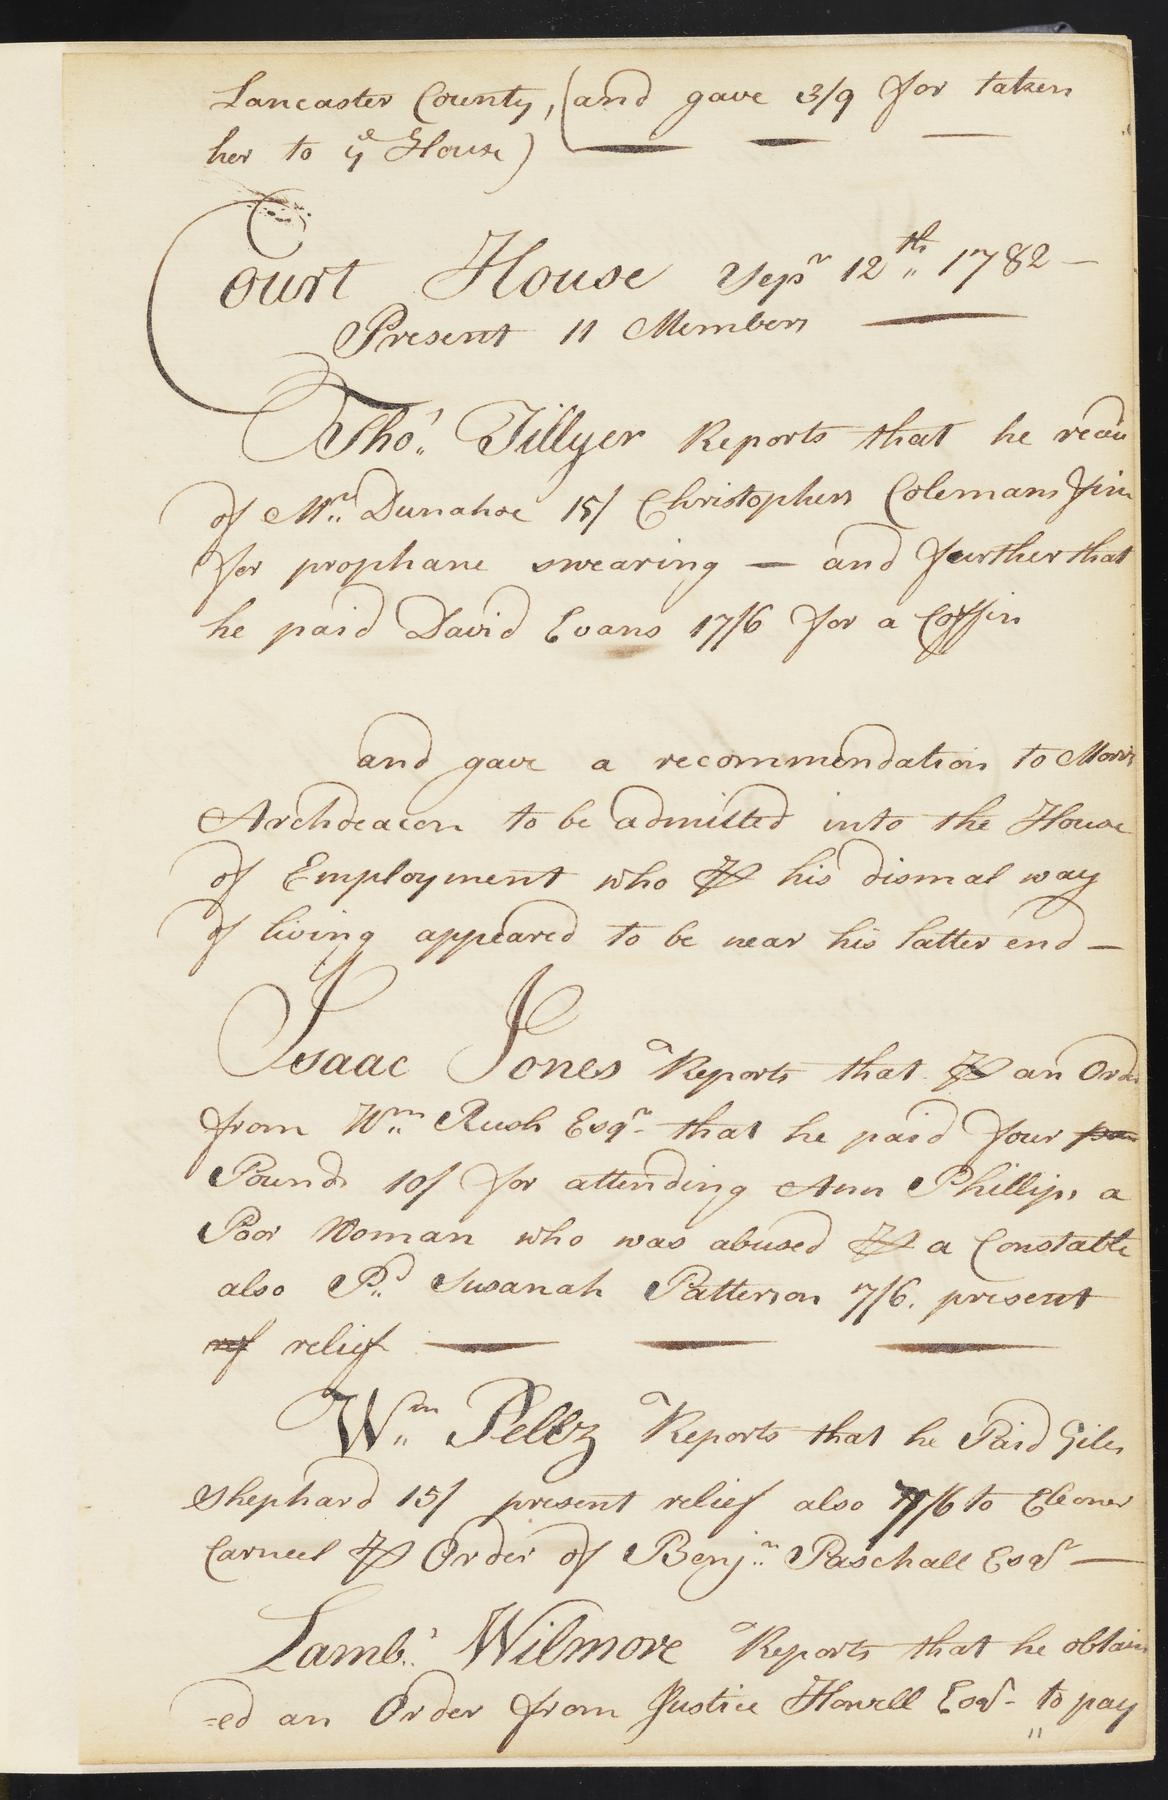 Lancaster County, (and gave 3/9 for taken
her to ye House)
Court House Sepr 12th 1782 —
Present 11 Members
Thos. Tillyer Reports that he
of Mr. Dunahoe 15/ Christophers Colemans fine
for prophane swearing — and further that
he paid David Evans 17/6 for a Coffin
and gave a recommendation to Morris
Archdeacon to be admitted into the House
of Employment who ⅌ his dismal way
of living appeared to be near his latter end —
Isaac Jones Reports that ⅌ an Order
from Wm. Rush Esqr. that he paid four
Pounds 10/ for attending Ann Phillips a
Poor Woman who was abused ⅌ a Constable
also Pd. Susanah Patterson 7/6. present
ref relief
Wm. Peltz Reports that he Paid Giles
Shephard 15/ present relief also 7/6 to Eleoner
Carneel ⅌ Order of Benjn. Paschall Esqr —
Lambt. Wilmore Reports that he obtain
=ed an Order from Justice Howell Esqr. to pay